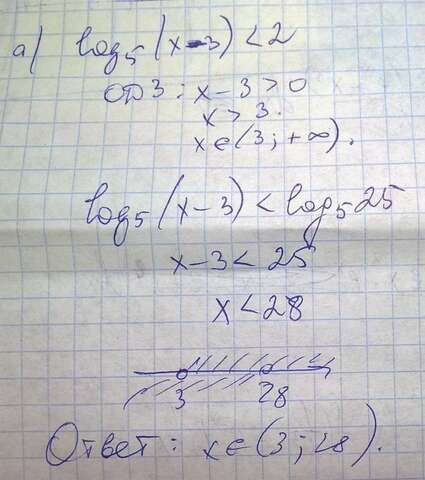 а) log₅(x-3) < 2
ОДЗ: x-3 > 0
x > 3.
x∈(3; +∞).
log₅(x-3) < log₅25
x-3 < 25
x < 28
3 28
Ответ: x∈(3; 28).